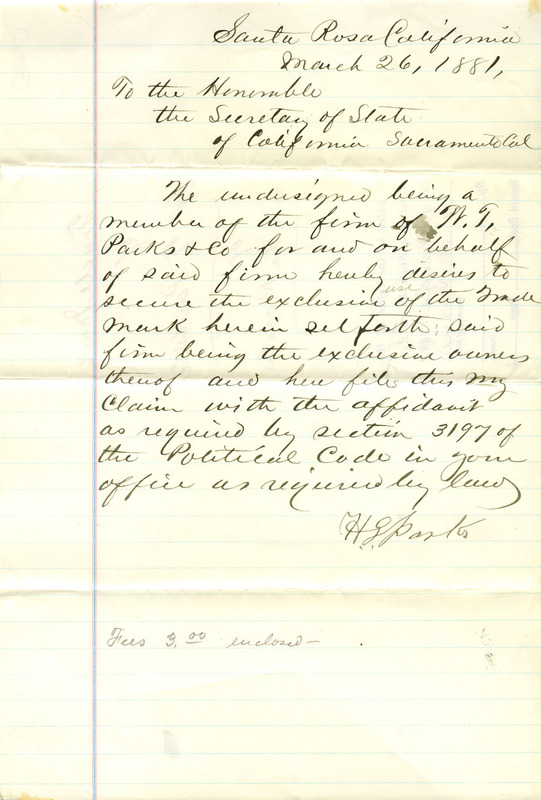 Santa Rosa California
March 26, 1881,
To the Honorable
the Secretary of State
of California Sacramento Cal
The undersigned being a
member of the firm of W. T.
Parks & Co for and on behalf
of said firm hereby desires to
secure the exclusive use of the Trade
mark herein set forth; said
firm being the exclusive owners
thereof and here file this my
Claim with the affidavit
as required by section 3197 of
the Political Code in your
office as required by law
H. Parks
Fees 3.00 enclosed—